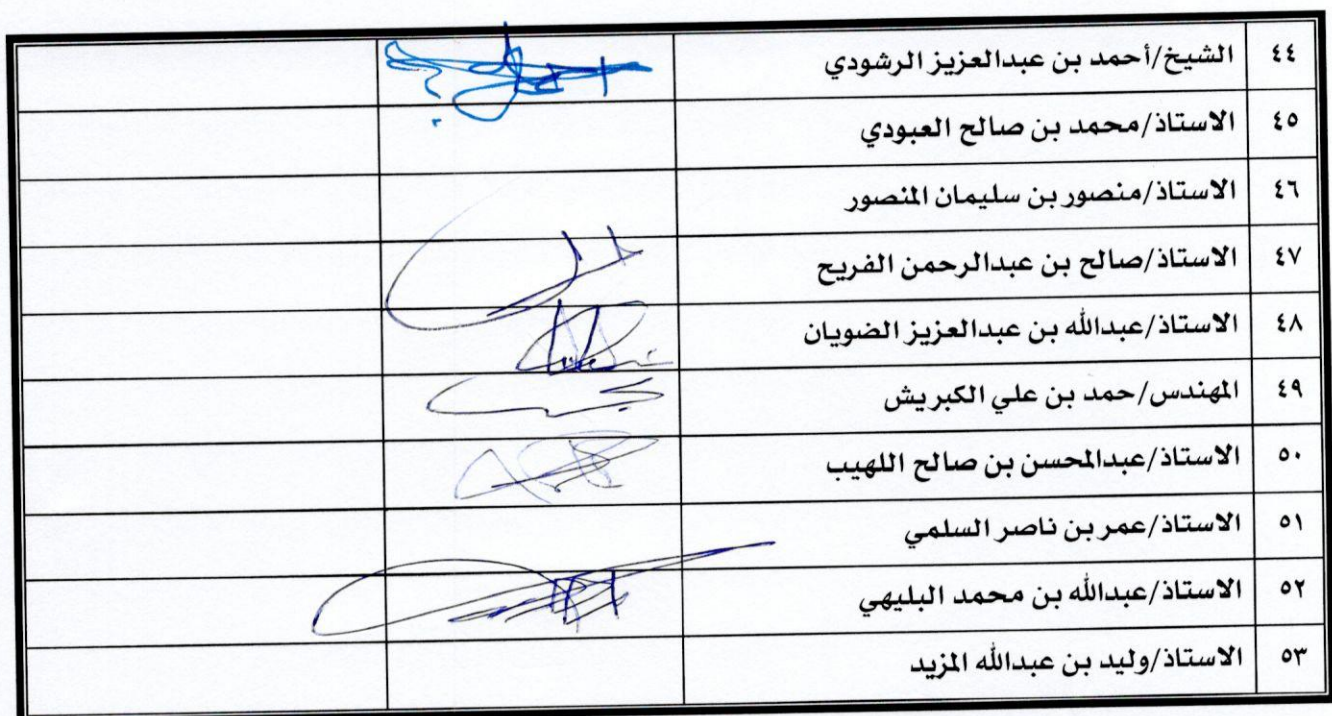 ٤٤ الشيخ/أحمد بن عبدالعزيز الرشودي
٤٥ الاستاذ/محمد بن صالح العبودي
٤٦ الاستاذ/منصور بن سليمان المنصور
٤٧ الاستاذ/صالح بن عبدالرحمن الفريح
٤٨ الاستاذ/عبدالله بن عبدالعزيز الضويان
٤٩ المهندس/حمد بن علي الكبريش
٥٠ الاستاذ/عبدالمحسن بن صالح اللهيب
٥١ الاستاذ/عمر بن ناصر السلمي
٥٢ الاستاذ/عبدالله بن محمد البليهي
٥٣ الاستاذ/وليد بن عبدالله المزيد